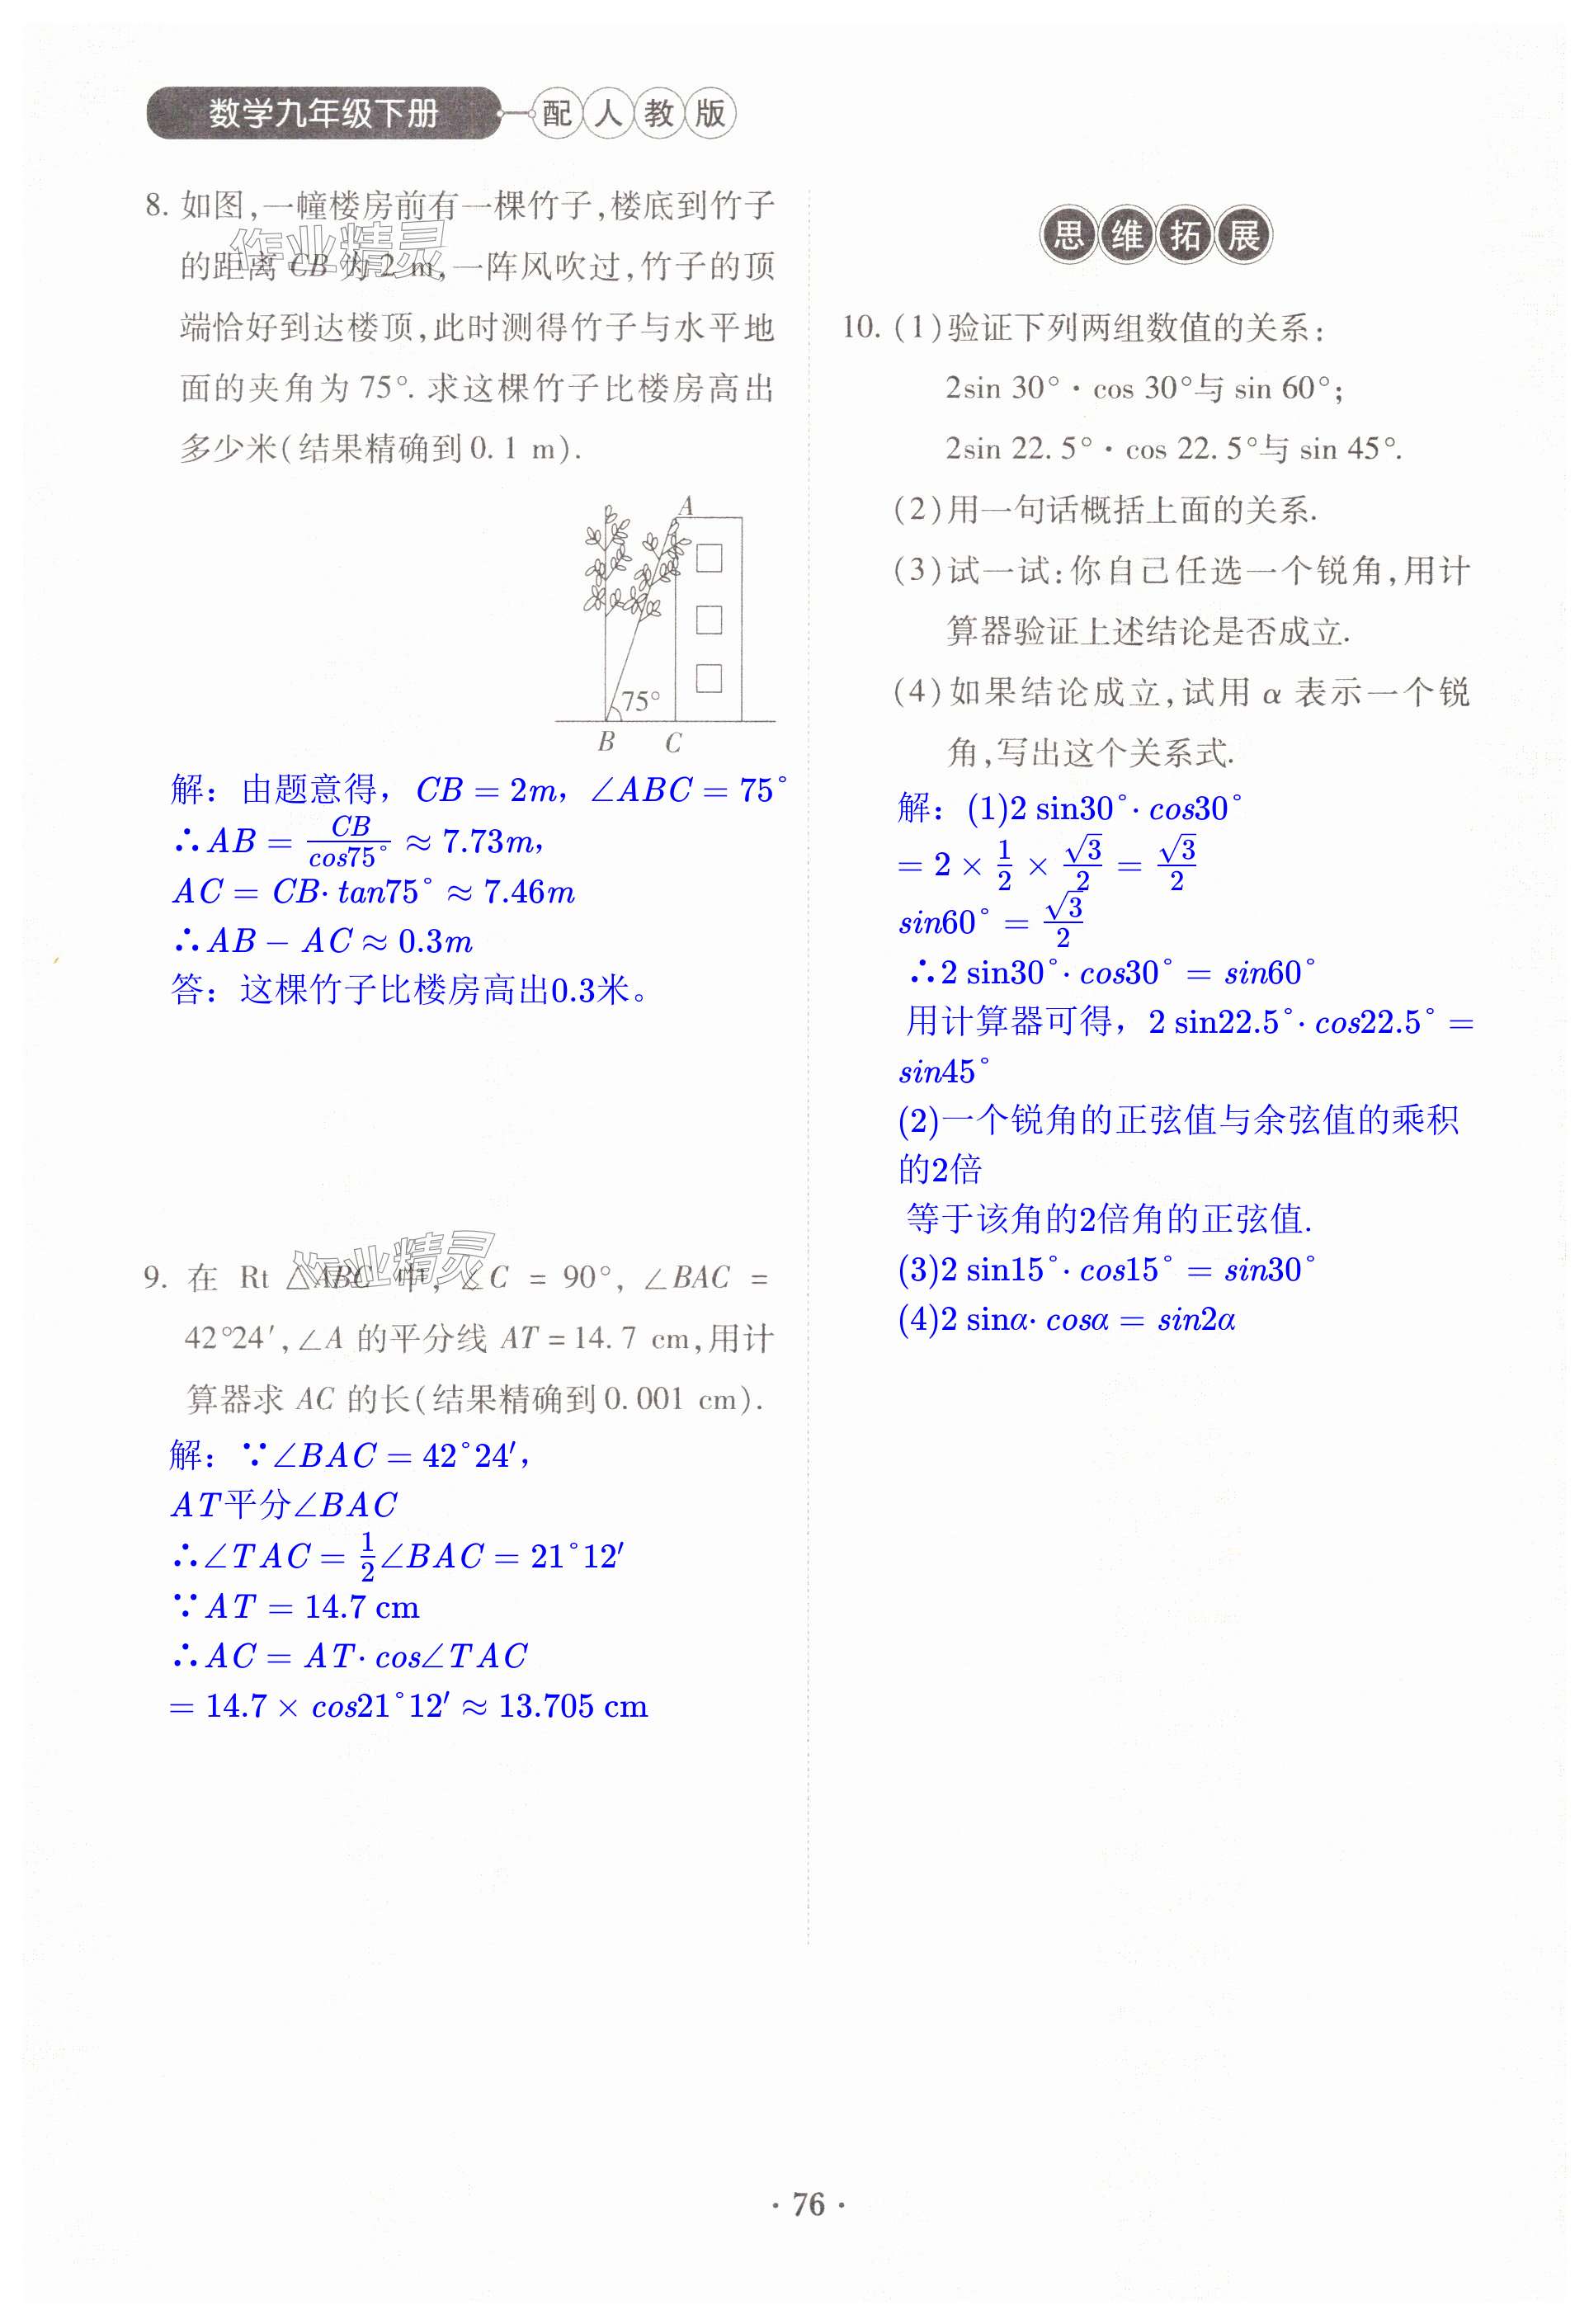 数学九年级下册 配人教版
8. 如图,一幢楼房前有一棵竹子,楼底到竹子
的距离 CB 为 2 m,一阵风吹过,竹子的顶
端恰好到达楼顶,此时测得竹子与水平地
面的夹角为 75°. 求这棵竹子比楼房高出
多少米(结果精确到 0. 1 m).
作业精灵
A
75°
B C
解：由题意得，CB = 2m，∠ABC = 75°
∴AB = CB/cos75° ≈ 7.73m，
AC = CB· tan75° ≈ 7.46m
∴AB − AC ≈ 0.3m
答：这棵竹子比楼房高出0.3米。
作业精灵
9. 在 Rt △ABC 中, ∠C = 90°, ∠BAC =
42°24′,∠A 的平分线 AT = 14. 7 cm,用计
算器求 AC 的长(结果精确到 0. 001 cm).
解：∵∠BAC = 42°24′，
AT平分∠BAC
∴∠TAC = 1/2∠BAC = 21°12′
∵AT = 14.7 cm
∴AC = AT· cos∠TAC
= 14.7 × cos21°12′ ≈ 13.705 cm
思维拓展
10. (1)验证下列两组数值的关系:
2sin 30°·cos 30°与 sin 60°;
2sin 22. 5°·cos 22. 5°与 sin 45°.
(2)用一句话概括上面的关系.
(3)试一试:你自己任选一个锐角,用计
算器验证上述结论是否成立.
(4)如果结论成立,试用 α 表示一个锐
角,写出这个关系式.
解：(1)2 sin30°· cos30°
= 2 × 1/2 × √3/2 = √3/2
sin60° = √3/2
∴2 sin30°· cos30° = sin60°
用计算器可得，2 sin22.5°· cos22.5° =
sin45°
(2)一个锐角的正弦值与余弦值的乘积
的2倍
等于该角的2倍角的正弦值.
(3)2 sin15°· cos15° = sin30°
(4)2 sinα· cosα = sin2α
· 76 ·